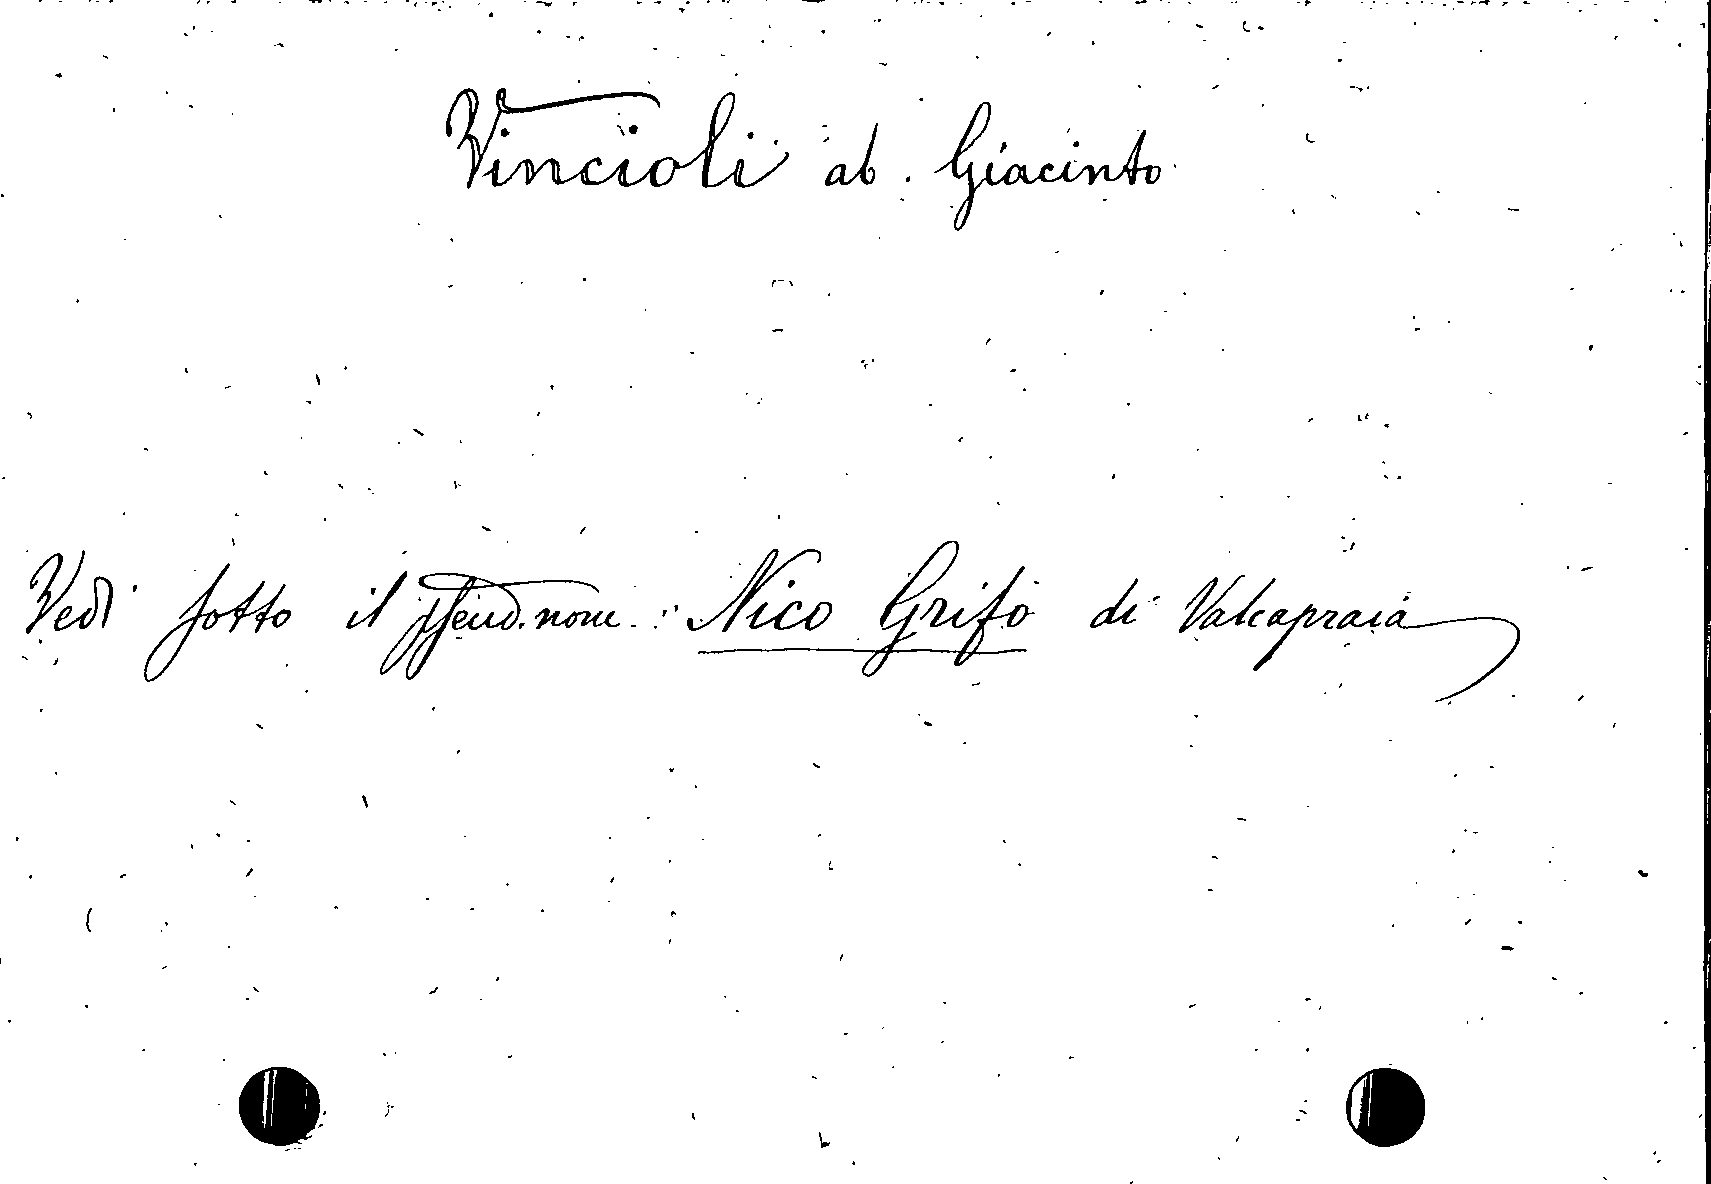 Vincioli ab. Giacinto
Vedi sotto il pseud.nome: Nico Grifo di Valcapraia